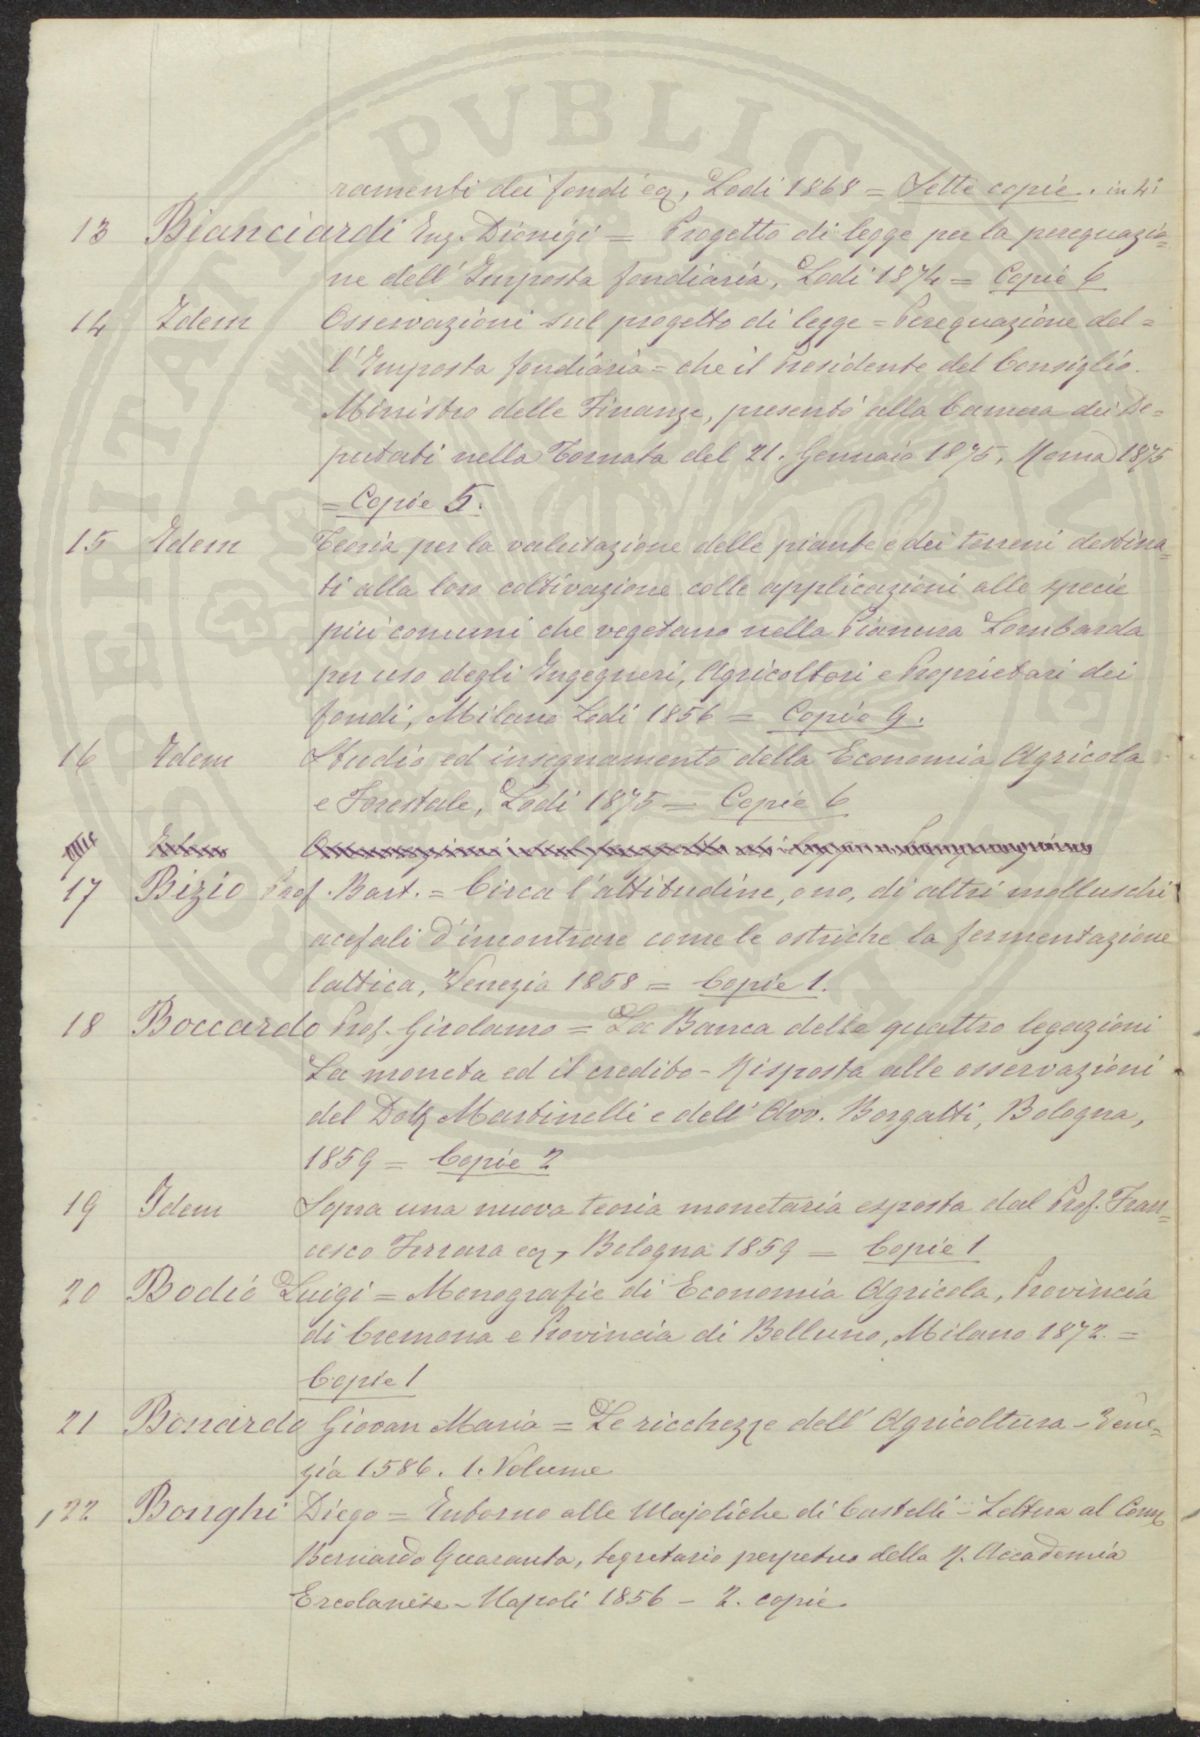 PVBLICAE
PROSPERITATI
ramenti dei fondi ec, Lodi 1868 = Sette copie. in 4°
13 Bianciardi Ing. Dionigi = Progetto di legge per la perequazio=
ne dell' Imposta fondiaria, Lodi 1874 = Copie 6
14 Idem Osservazioni sul progetto di legge = Perequazione del=
l' Imposta fondiaria = che il Presidente del Consiglio.
Ministro delle Finanze, presentò alla Camera dei De=
putati nella Tornata del 21. Gennaio 1875, Roma 1875
= Copie 5.
15 Idem Teoria per la valutazione delle piante e dei terreni destina=
ti alla loro coltivazione colle applicazioni alle specie
più comuni che vegetano nella Pianura Lombarda
per uso degli Ingegneri, Agricoltori e Proprietari dei
fondi, Milano Lodi 1856 = Copie 9.
16 Idem Studio ed insegnamento della Economia Agricola
e Forestale, Lodi 1875 = Copie 6
Idem Osservazioni sul progetto di legge
17 Bizio Prof. Bart. = Circa l'attitudine, o no, di altri molluschi
acefali d'incontrare come le ostriche la fermentazione
lattica, Venezia 1858 = Copie 1.
18 Boccardo Prof. Girolamo = La Banca delle quattro legazioni
La moneta ed il credito - Risposta alle osservazioni
del Dott Martinelli e dell' Avv. Borgatti, Bologna,
1859 = Copie 2
19 Idem Sopra una nuova teoria monetaria esposta dal Prof. Fran=
cesco Ferrara ec, Bologna 1859 = Copie 1
20 Bodio Luigi = Monografie di Economia Agricola, Provincia
di Cremona e Provincia di Belluno, Milano 1872. =
Copie 1
21 Bonardo Giovan Maria = Le ricchezze dell' Agricoltura - Vene=
zia 1586. 1. Volume
22 Bonghi Diego = Intorno alle Majoliche di Castelli - Lettera al Comm
Bernardo Quaranta, segretario perpetuo della R. Accademia
Ercolanese - Napoli 1856 - 2. copie